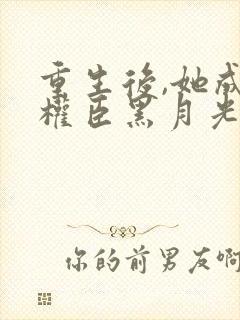 重生後,她成
權臣黑月光
你的前男友啊